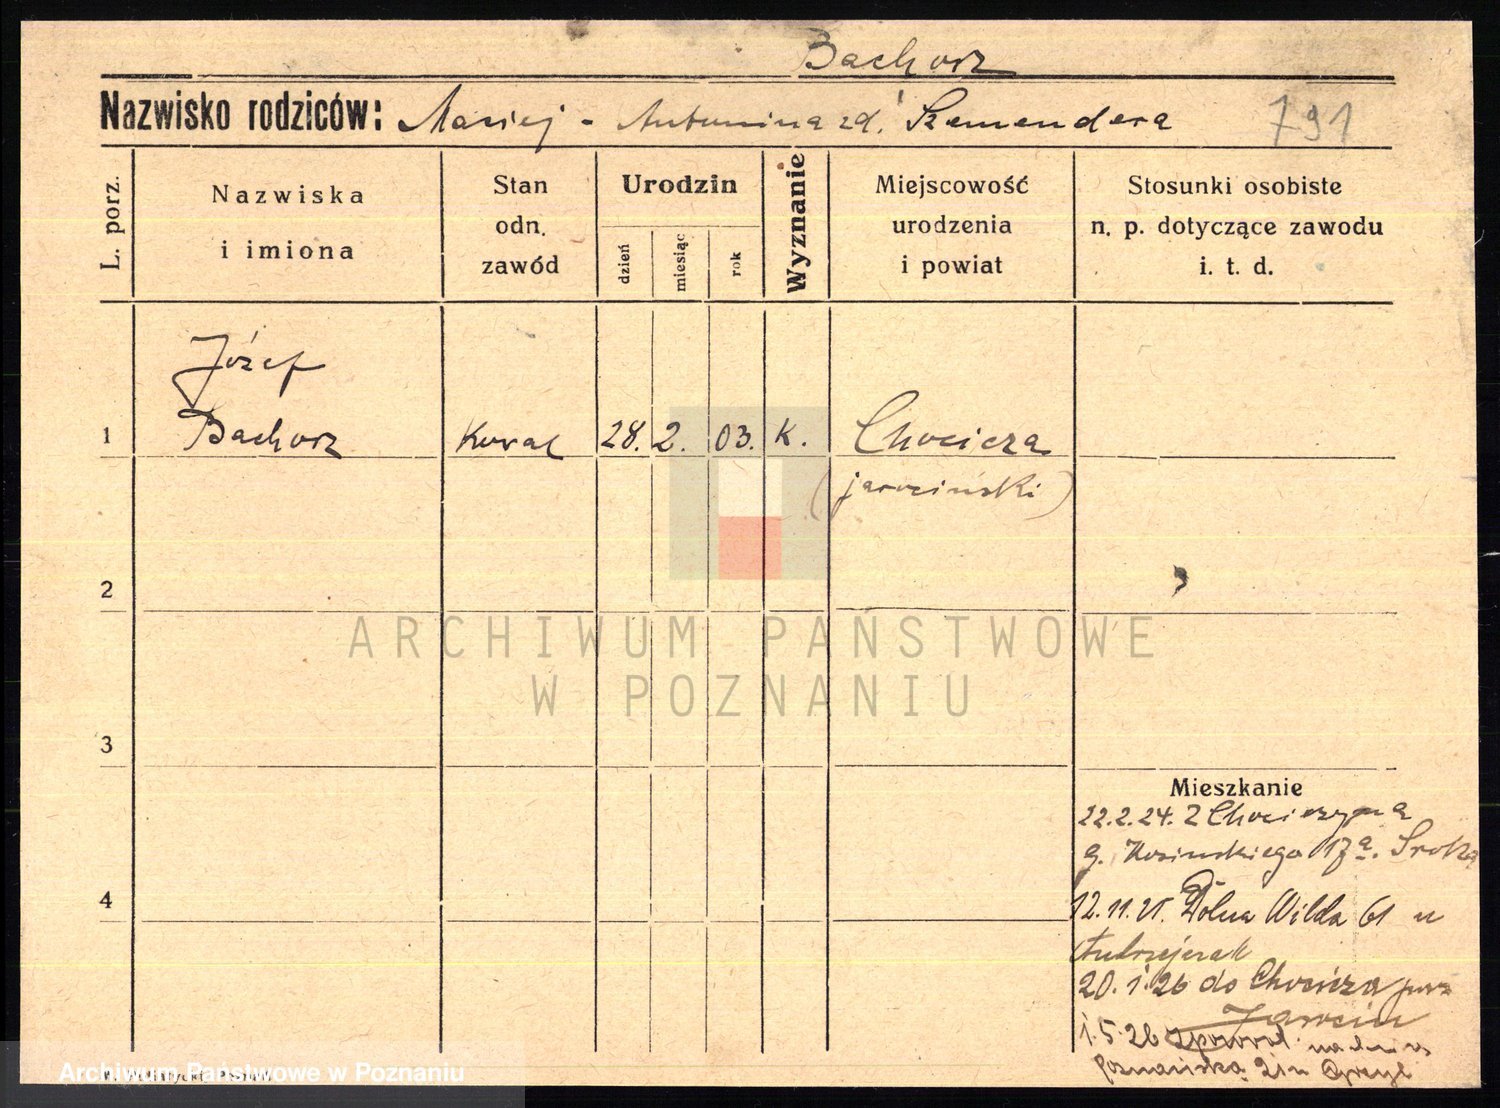 Bachorz
Nazwisko rodziców: Maciej - Antonina zd. Szemendera 791
L. porz.
Nazwiska
i imiona
Stan
odn.
zawód
Urodzin
dzień
miesiąc
rok
Wyznanie
Miejscowość
urodzenia
i powiat
Stosunki osobiste
n. p. dotyczące zawodu
i. t. d.
Józef
1 Bachorz Kowal 28. 2. 03. K. Chocicza
(jarociński)
2
ARCHIWUM PAŃSTWOWE
W POZNANIU
3
Mieszkanie
22.2.24. Z Chociczy
g. Kosinskiego 17a. Sroka
4
12.11.25. Dolna Wilda 61 u
Andrzejczak
20.1.26 do Chocicza pow
Jarocin
1.5.26 z powrot.
Poznańska
Archiwum Państwowe w Poznaniu